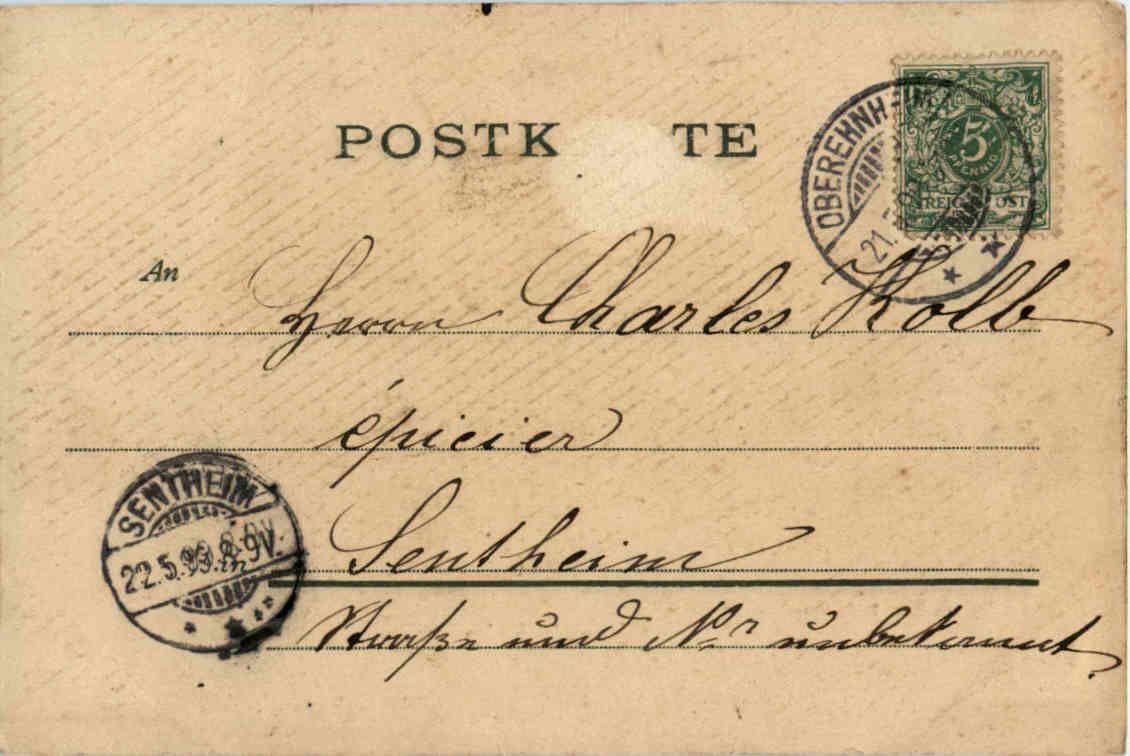 POSTK TE
5
PFENNIG
REICHSPOST
OBEREHNHEIM
21.
An
Herrn Charles Kolb
épicier
Sentheim
SENTHEIM
22.5.99.8-9V.
in
Straße und Nr unbekannt